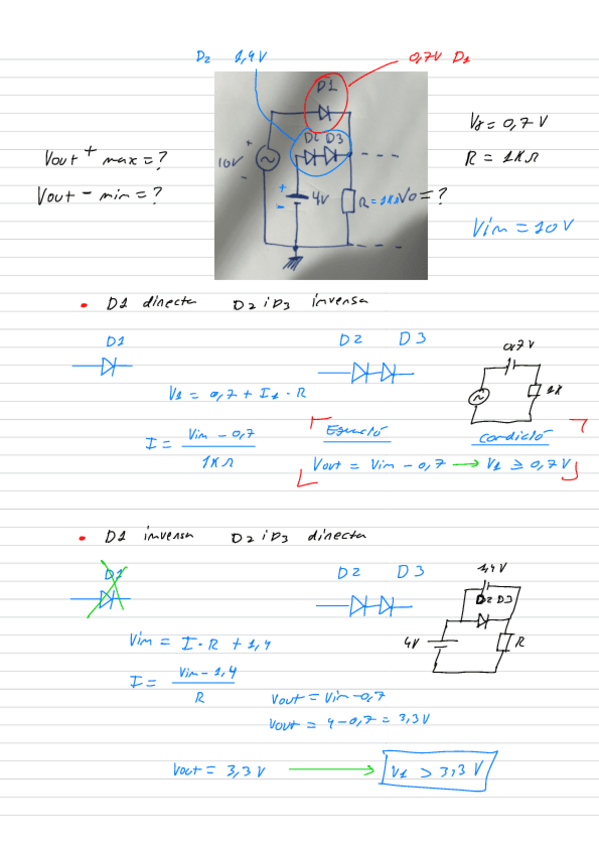 D2 1,4V 0,7V D1
D1
Vγ = 0,7 V
D2 D3
Vout + max = ?
10V
R = 1KΩ
Vout - min = ?
+
-
+
-
4V
R = 1KΩ
Vo = ?
Vin = 10V
• D1 directa D2 i D3 inversa
D1
D2 D3
0,7 V
V1 = 0,7 + I1 · R
1K
I = Vin - 0,7
1KΩ
Equació
Condició
Vout = Vin - 0,7 → V1 ≥ 0,7V
• D1 inversa D2 i D3 directa
D1
D2 D3
1,4V
D2 D3
Vin = I · R + 1,4
4V
R
I = Vin - 1,4
R
Vout = Vin - 0,7
Vout = 4 - 0,7 = 3,3V
Vout = 3,3 V → V1 > 3,3 V